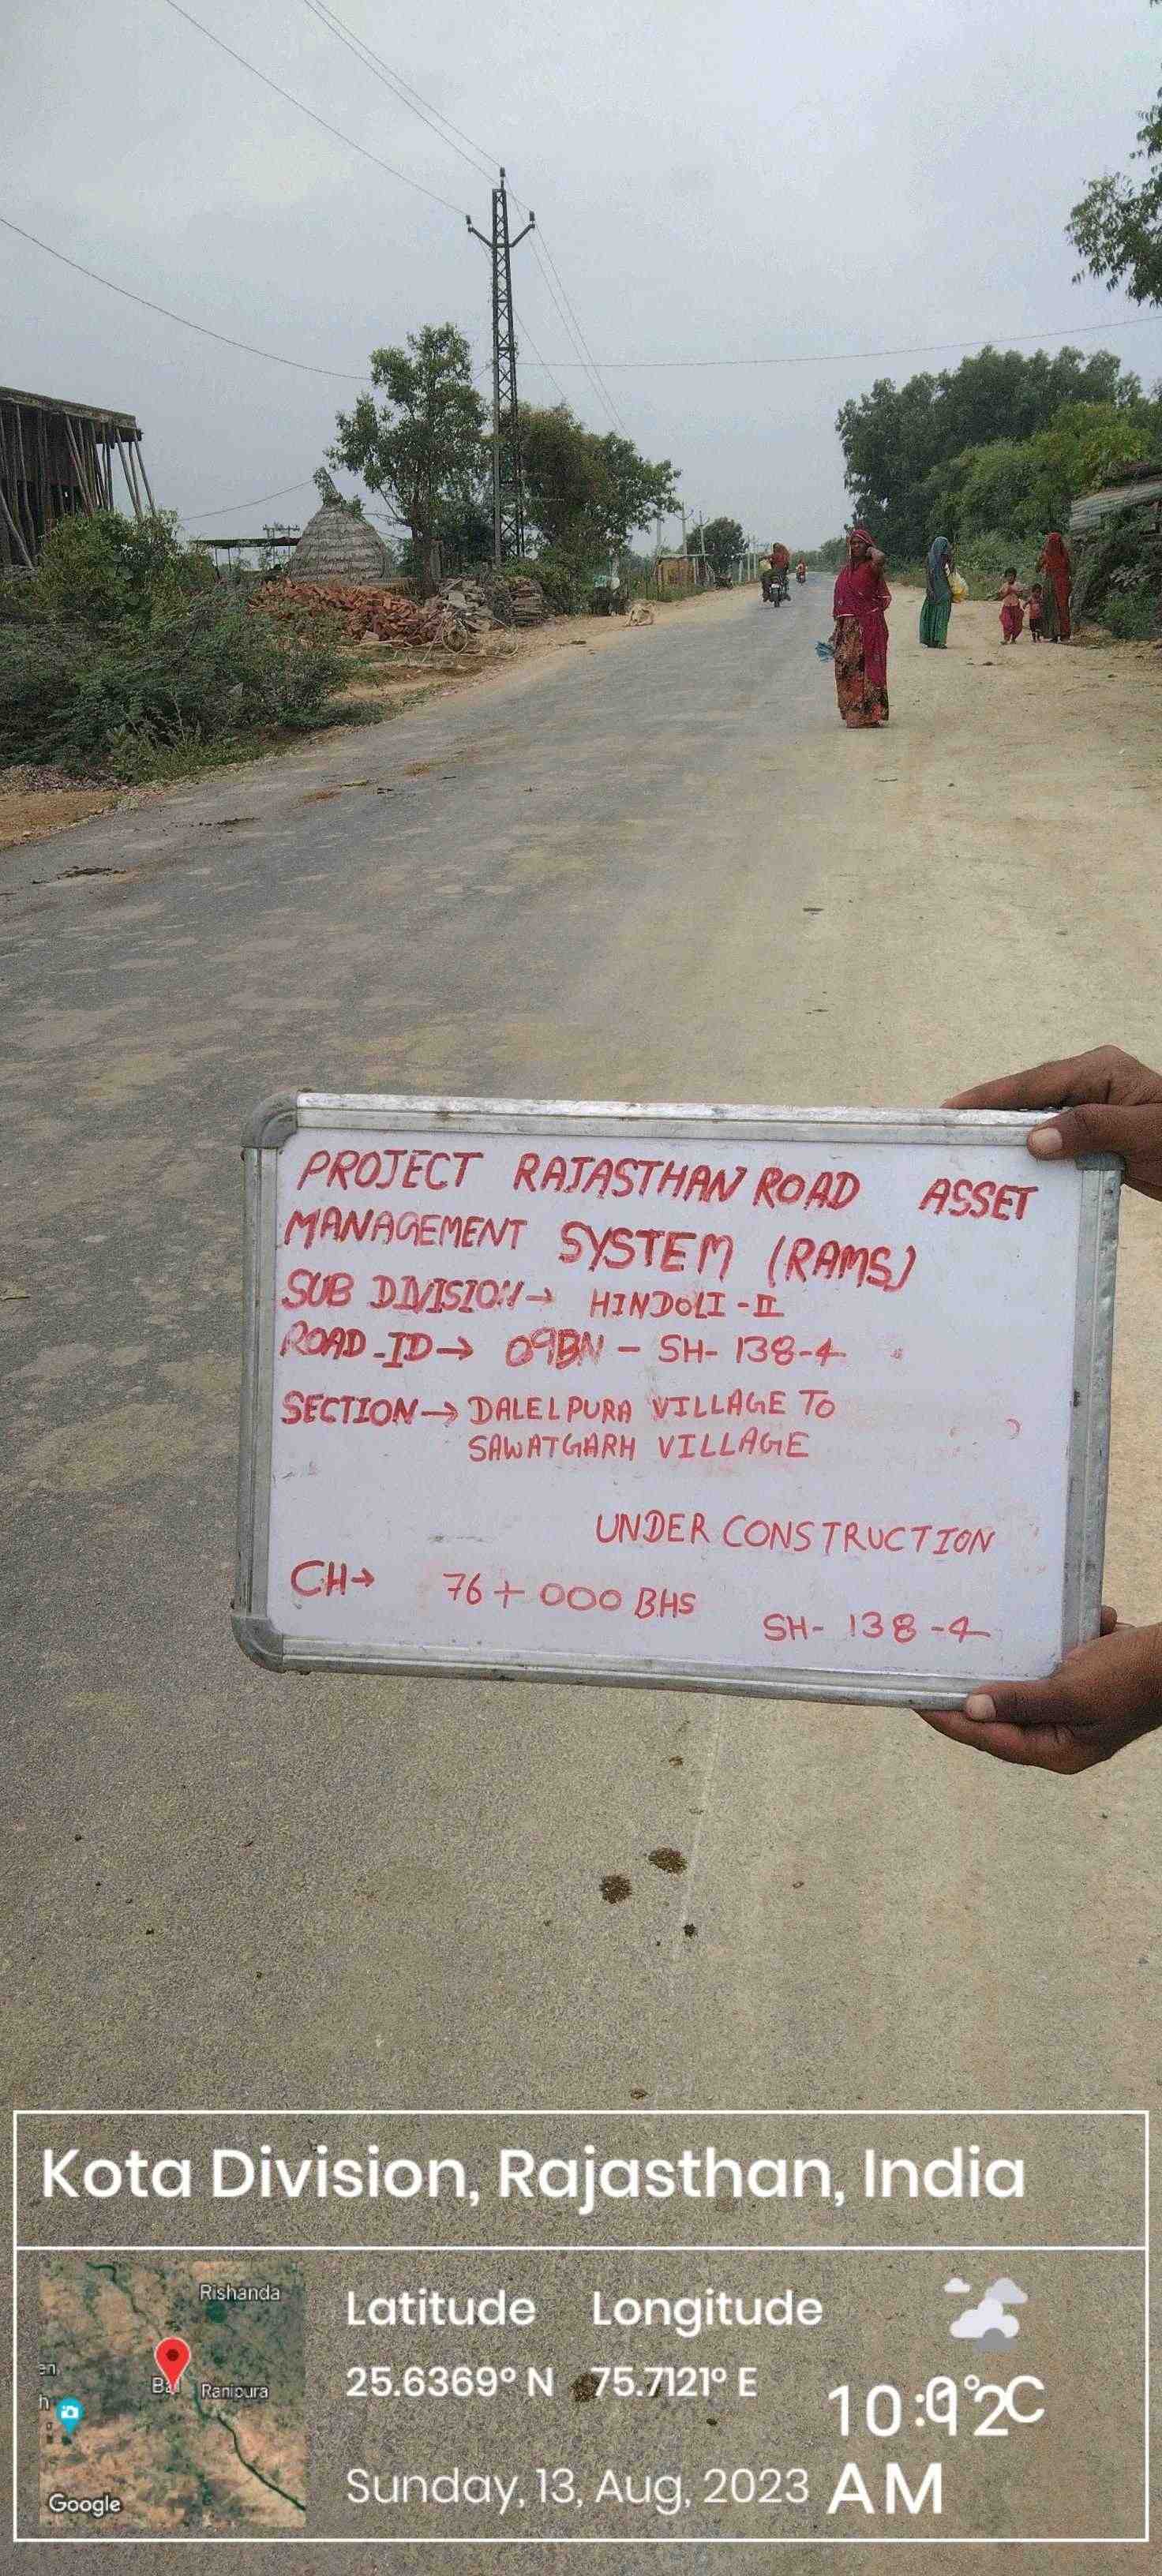 PROJECT RAJASTHAN ROAD ASSET
MANAGEMENT SYSTEM (RAMS)
SUB DIVISION→ HINDOLI-II
ROAD-ID→ 09BN-SH-138-4
SECTION→ DALELPURA VILLAGE TO
SAWATGARH VILLAGE
UNDER CONSTRUCTION
CH→ 76+000 BHS
SH-138-4
Kota Division, Rajasthan, India
Rishanda
Ranipura
Google
Latitude Longitude
25.6369° N 75.7121° E
Sunday, 13, Aug, 2023
AM